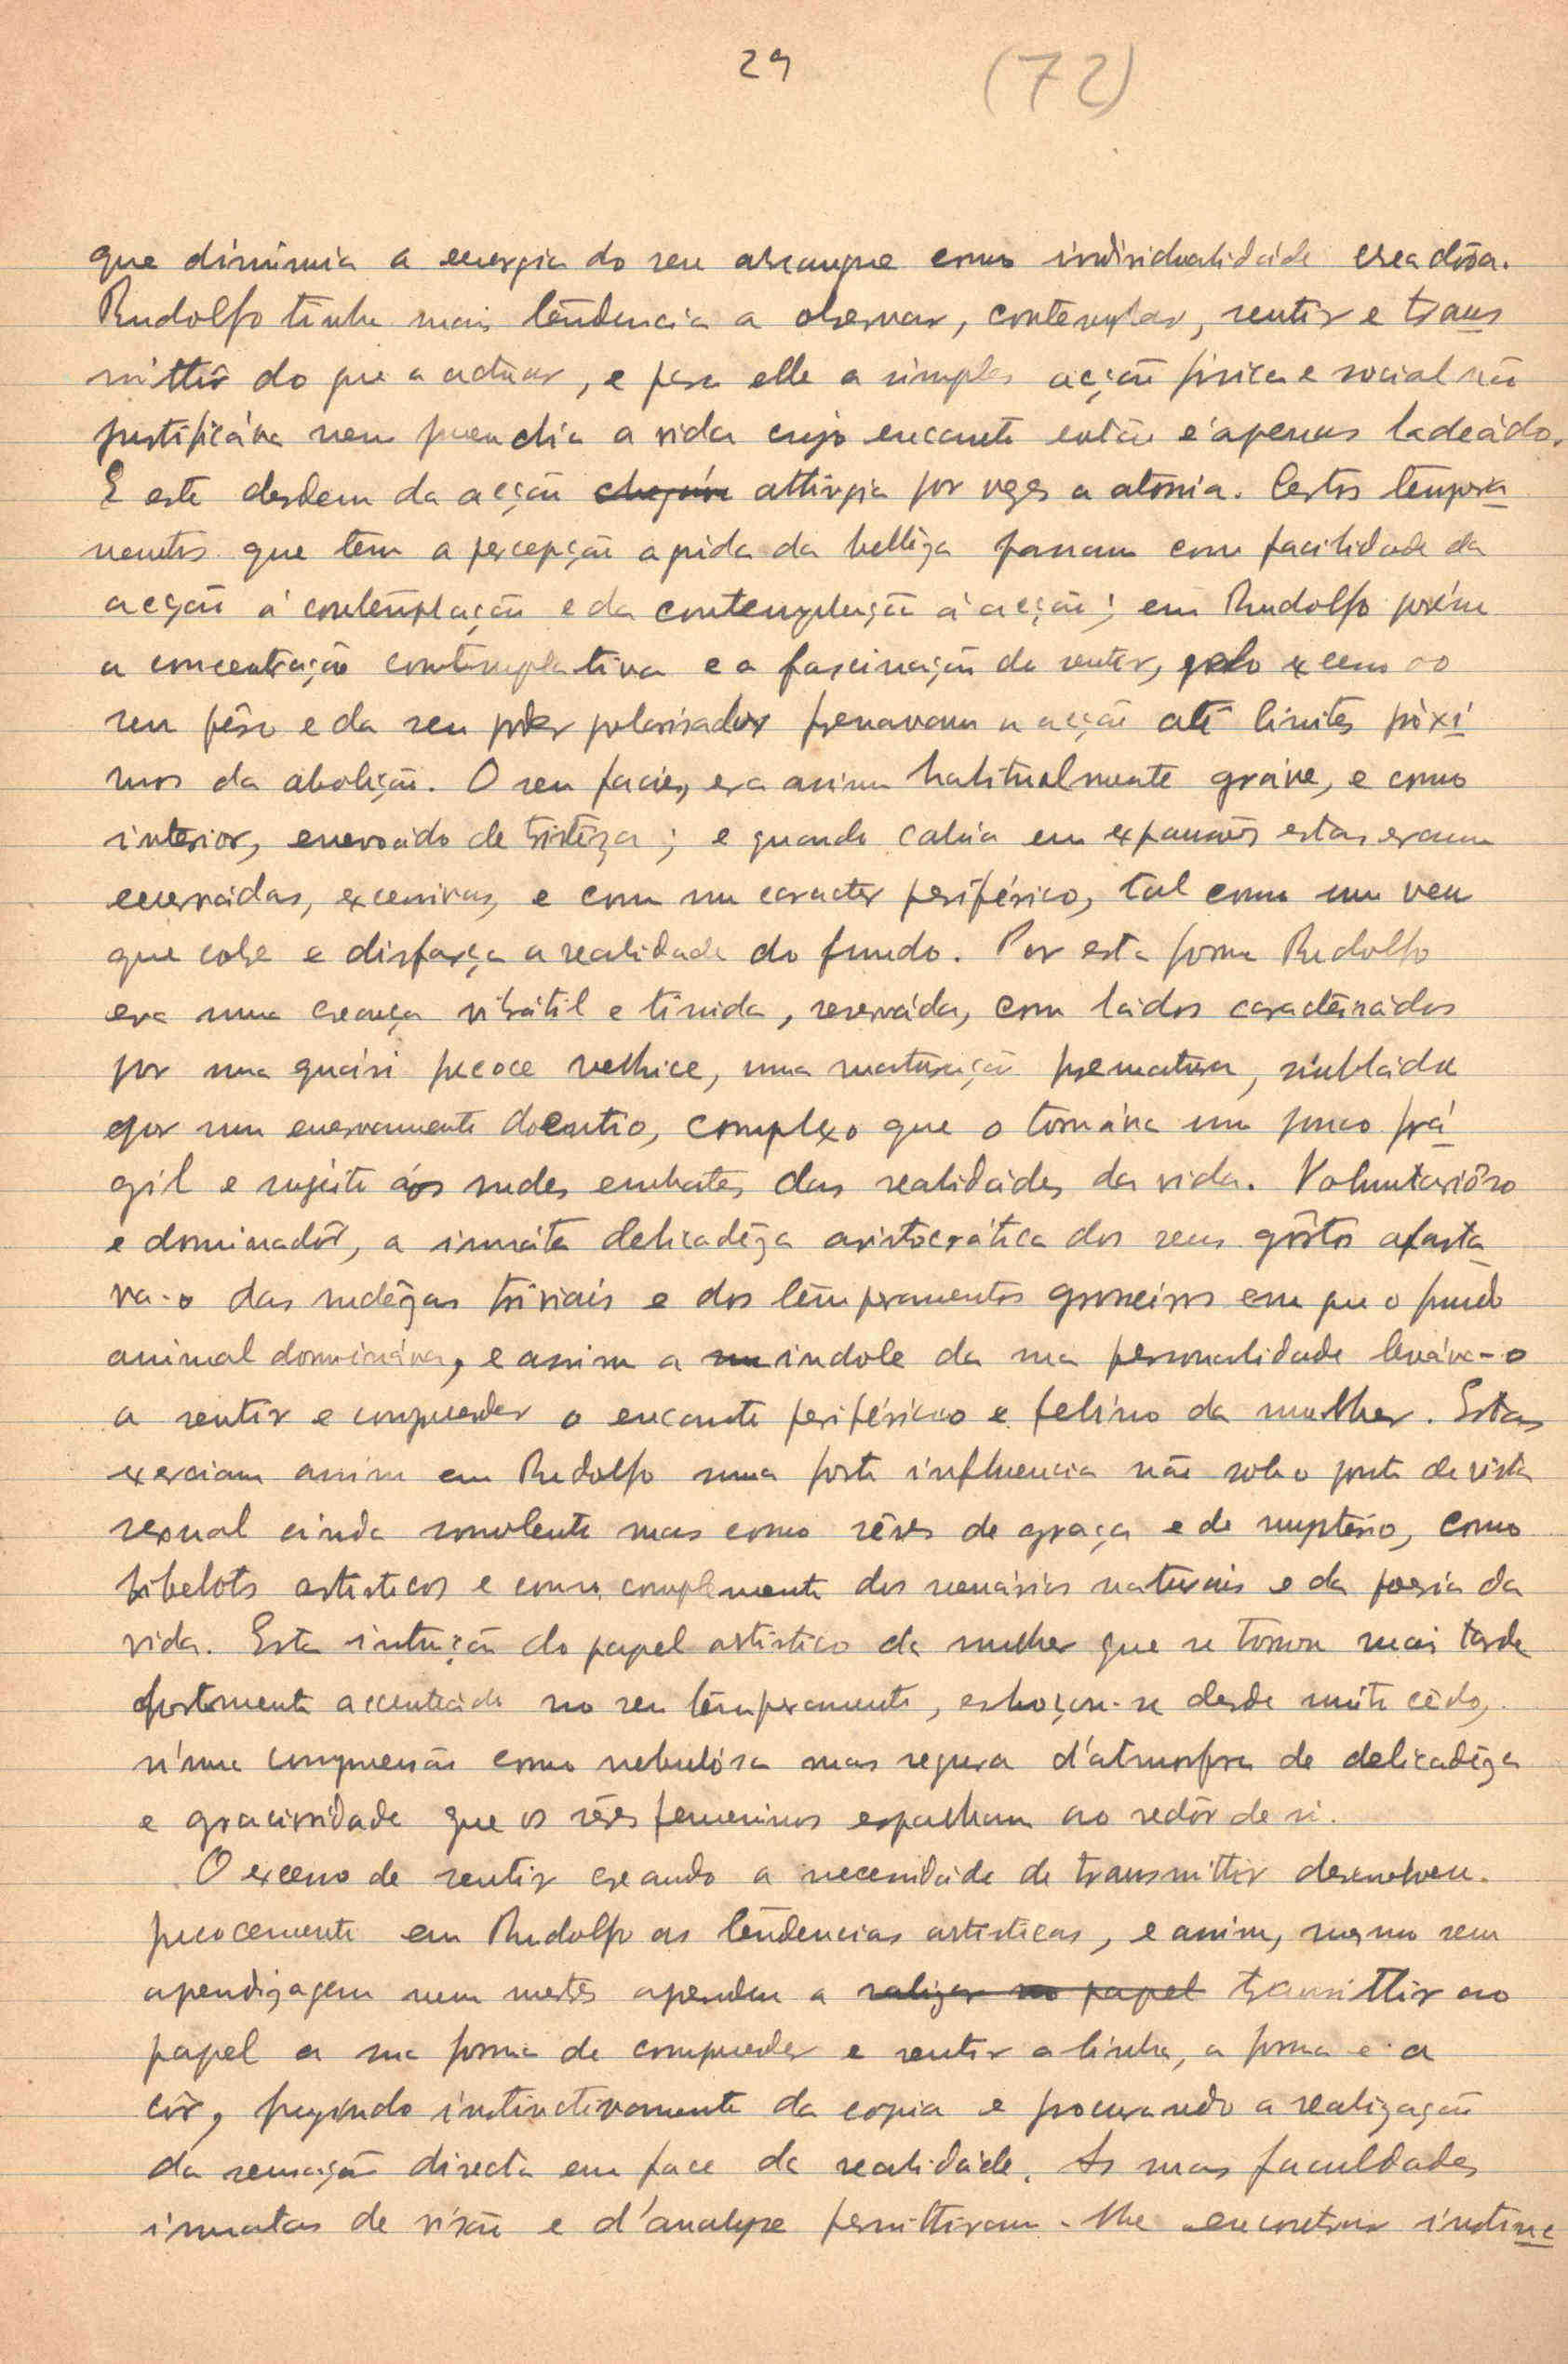 29 (72)
que diminuia a energia do seu arranque como individualidáde creadôra.
Rudolfo tinha mais tendencia a observar, contemplar, sentir e trans
mittir do que a actuar, e para elle a simples acção fisica e social não
justificáva nem prendia a vida cujo encanto então é apenas ladeádo.
E este desdem da acção ~~chegáva~~ attingia por vezes a atonia. Certos tempera
mentos que têm a percepção apida da belleza passam com facilidade da
acção á contemplação e da contemplação á acção; em Rudolfo porém
a concentração contemplativa e a fascinação de sentir, pelo excesso
seu pêso e da seu poder polarisador frenavam a acção até limites próxi
mos da abolição. O seu facies, era assim habitualmente gráve, e como
interior, enevoádo de tristêza; e quando cahia em expansões estas eram
enervadas, excessivas, e com um caracter periférico, tal como um veu
que cobre e disfarça a realidade do fundo. Por esta forma Rudolfo
era uma creança vibrátil e timida, reservada, com ládos caracterisádos
por uma quási precoce velhice, uma maturação prematura, nubláda
por um enervamento doentio, complexo que o tornáva um pouco frá
gil e sujeito aos rudes embates das realidádes da vida. Voluntariôso
e dominadôr, a innáta delicadêza aristocrática dos seus gôstos afasta
va-o das rudêzas triviais e dos temperamentos grosseiros em que o fundo
animal domináva, e assim a indole da sua personalidade leváva-o
a sentir e comprender o encanto periférico e felino da mulher. Estas
exerciam assim em Rudolfo uma forte influencia não sob o ponto de vista
sexual ainda somolento mas como sêres de graça e de mysterio, como
bibelots artisticos e como complemento dos scenários naturais e da poesia da
vida. Esta intuição do papel artistico da mulher que se tornou mais tarde
fortemente accentuáda no seu temperamento, esboçou-se desde muito cêdo,
n'uma comprensão como nebulósa mas segura d'atmosfera de delicadêza
e graciosidade que os sêres femeninos espalham ao redôr de si.
O excesso de sentir creando a necessidáde de transmittir desenvolveu
precocemente em Rudolfo as tendencias artisticas, e assim, mesmo sem
aprendizagem nem mestres aprendeu a ~~realizar no papel~~ transmittir ao
papel a sua forma de comprender e sentir a linha, a forma e a
côr, fugindo instinctivamente da copia e procurando a realização
da sensação directa em face da realidáde. As suas faculdades
innatas de visão e d'analyse permittiram-lhe encontrar instinc